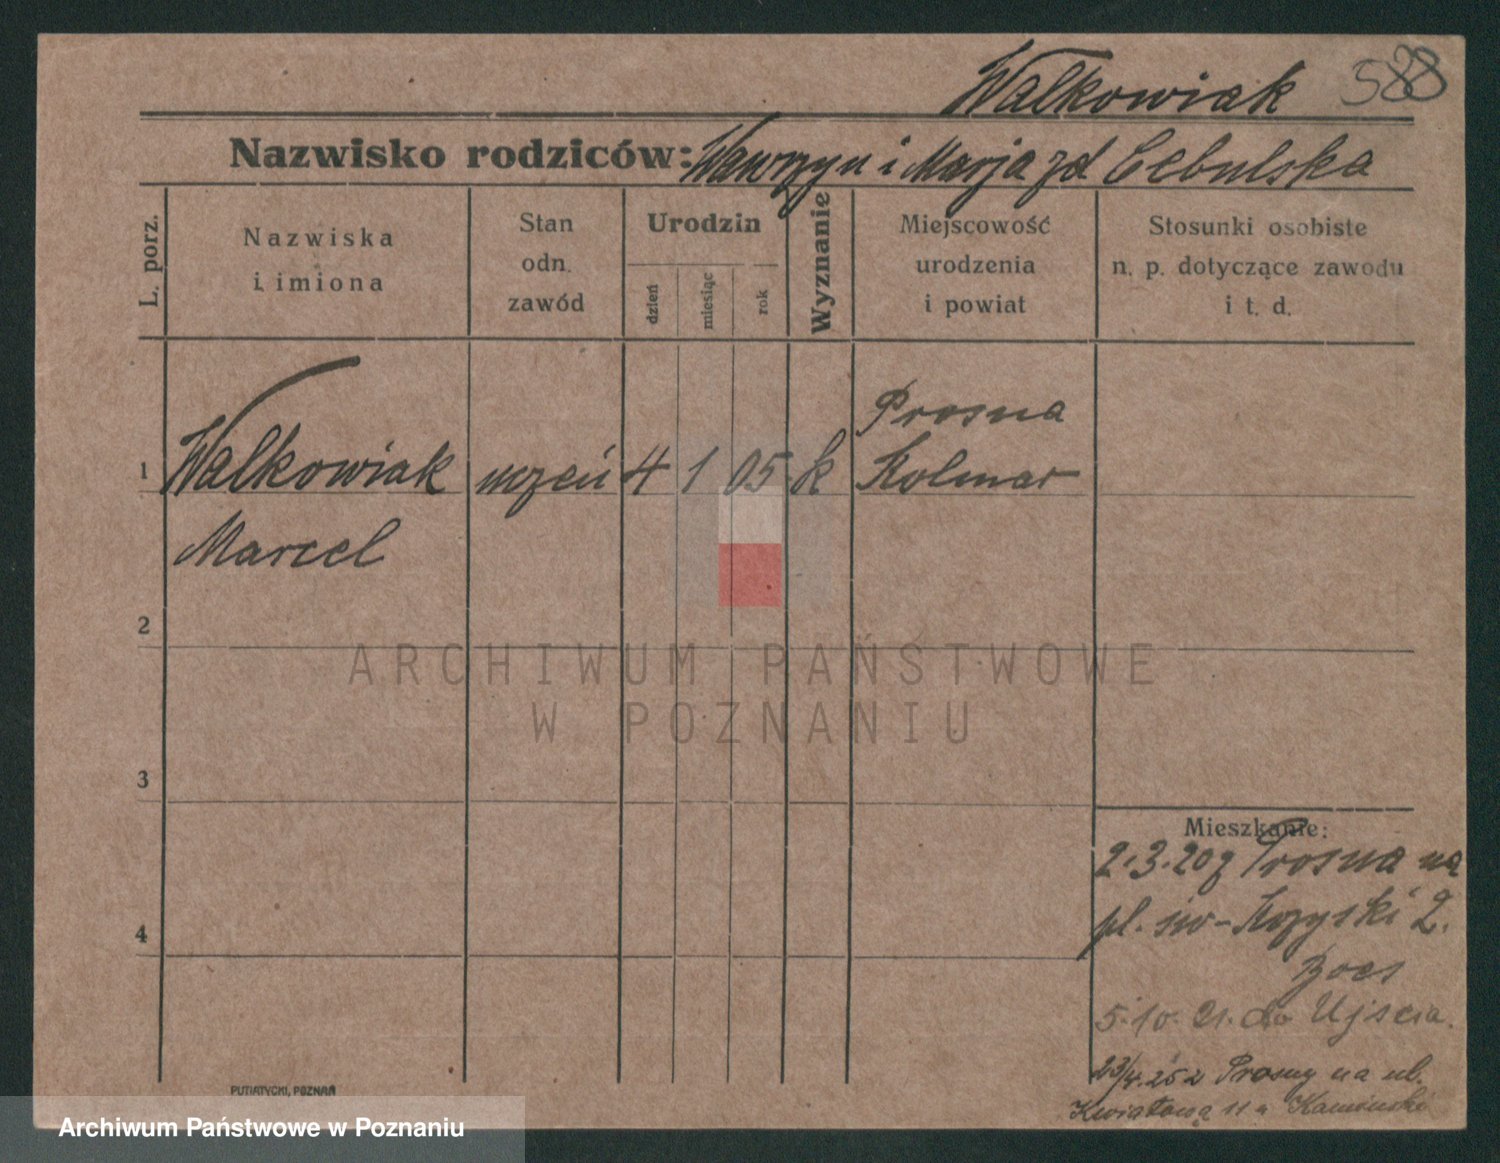 Walkowiak 588
Nazwisko rodziców: Wawrzyn i Marja zd Cebulska
L. porz.
Nazwiska
i imiona
Stan
odn.
zawód
Urodzin
dzień
miesiąc
rok
Wyznanie
Miejscowość
urodzenia
i powiat
Stosunki osobiste
n. p. dotyczące zawodu
i t. d.
Prosna
1 Walkowiak uczeń 4 1 05 k Kolmar
Marcel
2
3
4
Mieszkanie:
2.3.20 z Prosna na
pl. św-Krzyski 2.
5.10.21. do Ujscia.
23/4.25 z Prosny na ul.
Kwiatową 11 a Kamiński
PUTIATYCKI, POZNAŃ
ARCHIWUM PAŃSTWOWE
W POZNANIU
Archiwum Państwowe w Poznaniu